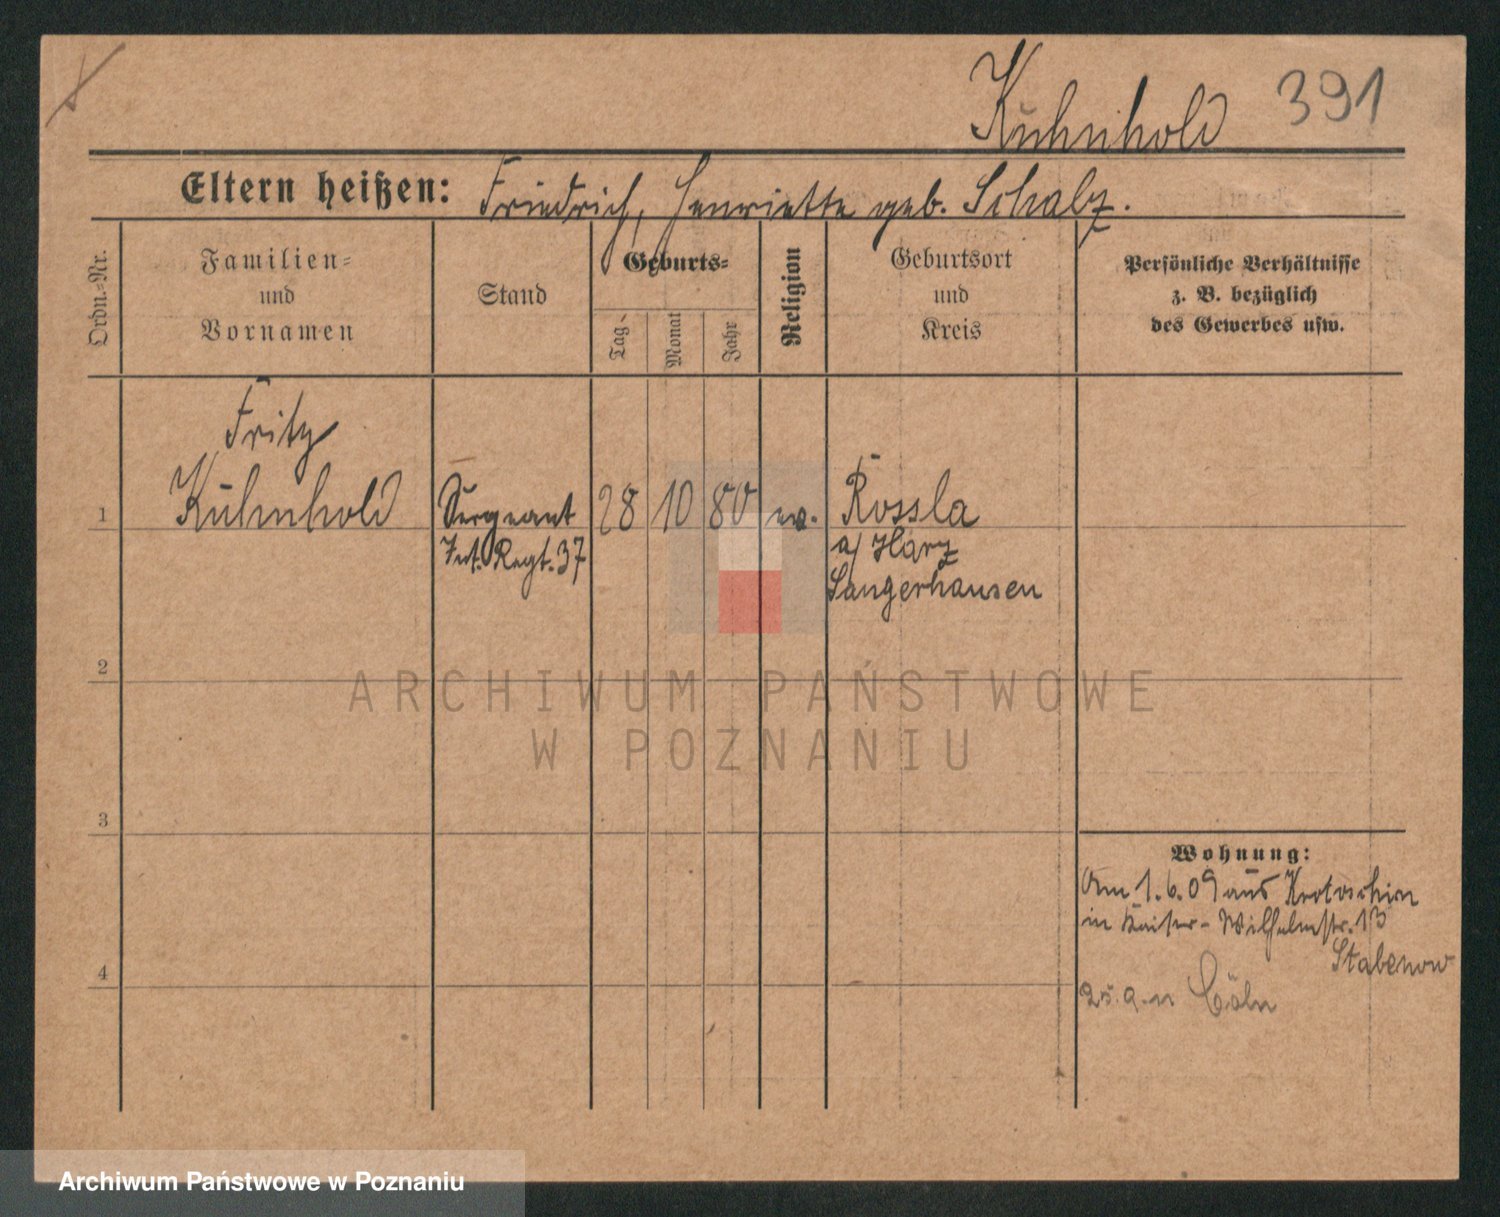 Kühnhold 391
Eltern heißen: Friedrich, Henriette geb. Schalz.
Ordn.-Nr.
Familien- und Vornamen
Stand
Geburts-
Tag
Monat
Jahr
Religion
Geburtsort und Kreis
Persönliche Verhältnisse
z. B. bezüglich
des Gewerbes usw.
Fritz
1 Kühnhold Sergeant 28 10 80 ev. Rossla
Inf. Regt. 37 a/ Harz
Sangerhausen
2
ARCHIWUM PAŃSTWOWE
W POZNANIU
3
Wohnung:
Am 1.6.09 aus Krotoschin
in Kaiser-Wilhelmstr. 13
Stabenow
4
Cöln
Archiwum Państwowe w Poznaniu